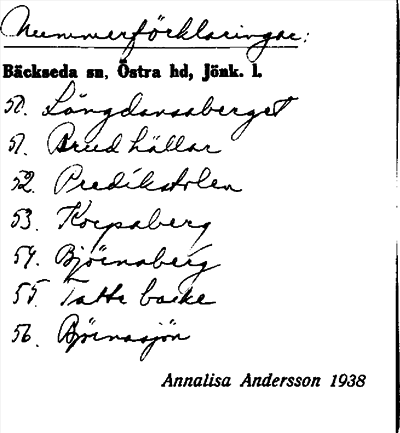 Nummerförklaringar:
Bäckseda sn, Östra hd, Jönk. l.
50. Långdansaberget
51. Brudhällar
52. Predikstolen
53. Korpaberg
54. Björnaberg
55. Tatte backe
56. Björnasjön
Annalisa Andersson 1938